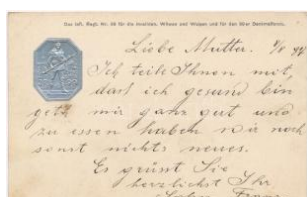 Das Inft. Regt. No. 28 für die Invaliden, Witwen und Waisen und für den 28er Denkmalfonds.
Liebe Mutter.
Ich teile Ihnen mit,
daß ich gesund bin
geth mir ganz gut und
zu essen haben wir noch
sonst nichts neues.
Es grüsst Sie
herzlichst Ihr
Franz